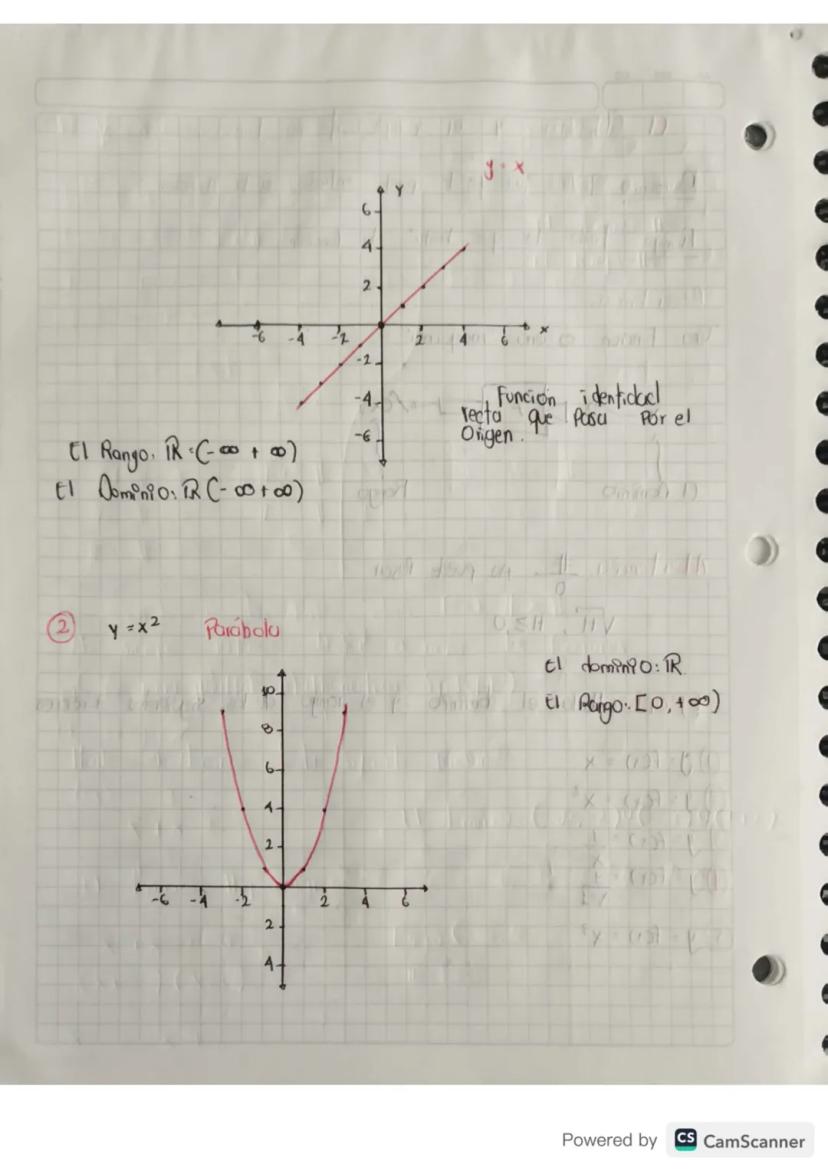 y = x
Y
6
4
2
-6 -4 -2 2 4 6 x
-2
-4
-6
Función identidad
recta que Pasa Por el
Origen.
El Rango: ℝ = (-∞ + ∞)
El Dominio: ℝ (-∞ + ∞)
② y = x² Parábola
El dominio: ℝ
El Rango: [0, +∞)
10
8
6
4
2
-6 -4 -2 2 4 6
2
4
Powered by CS CamScanner